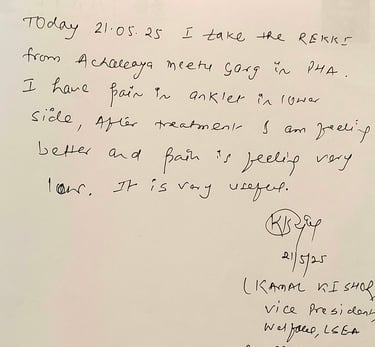 Today 21.05.25 I take the REKKI
from Achaleaya meetu Garg in PHA.
I have pain in anklet in lower
side, After treatment I am feeling
better and pain is feeling very
low. It is very useful.
21/5/25
(KAMAL KISHOR
Vice President
Welfare, LSEA